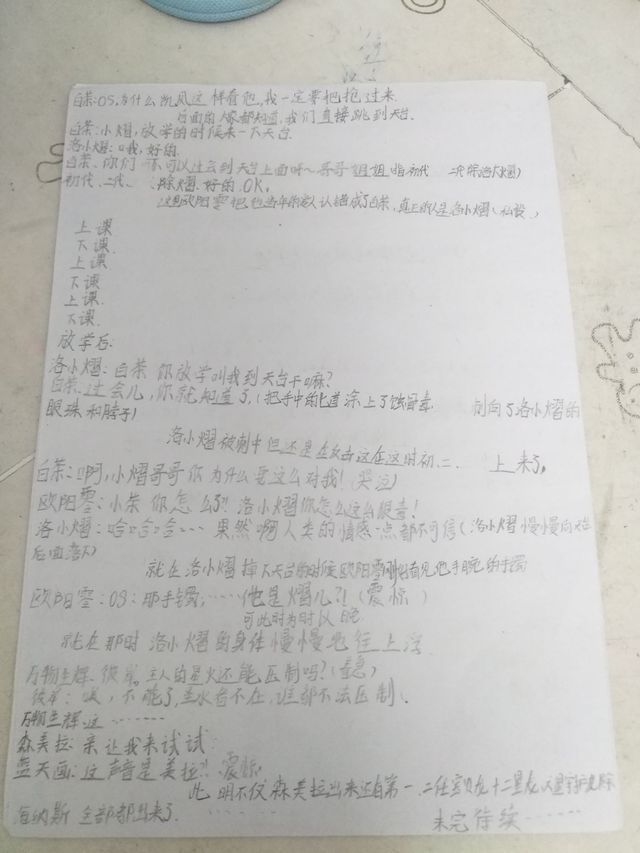 白茶:OS,为什么凯风这样看他,我一定要把抢过来
后面的大家都知道,我们直接跳到天台
白茶:小熠,放学的时候来一下天台
洛小熠:哦,好的.
白茶、你们 可以过会到天台上面呀~哥哥姐姐 指初代 二代除洛小熠)
初代、二代、 除熠.好的.OK,
这里欧阳零把他当年的救 认错成了白茶,真正的 是洛小熠(私设)
上课
下课.
上课
下课
上课.
下课.
放学后:
洛小熠:白茶 你放学叫我到天台干嘛?
白茶:过会儿,你就知道了,(把手中的 涂上了蚀骨毒 刺向了洛小熠的
眼珠和脖子)
洛小熠被刺中但还是在 这在这时初、二、 上来了,
白茶:啊,小熠哥哥你为什么要这么对我!(哭泣)
欧阳零:小茶 你怎么了?! 洛小熠你怎么这么狠毒!
洛小熠:哈哈哈… 果然啊人类的情感一点都不可信(洛小熠慢慢向天台
后面落下)
就在洛小熠摔下天台的时候欧阳零 看见他手腕的手镯
欧阳零:OS:那手镯,……他是熠儿?!(震惊)
可此时为时以晚
就在那时 洛小熠的身体慢慢地往上浮
万物生辉、彼岸,主人的星火还能压制吗?(着急)
彼岸:唉,不能了,兰水杏不在,谁都不法压制.
万物生辉:这………
森美拉:亲 让我来试试
蓝天画:这声音是美拉?! 震惊
此 明不仅森美拉出来还有第一、二任宝贝龙十二星龙
海纳斯 全部都出来了 未完待续……